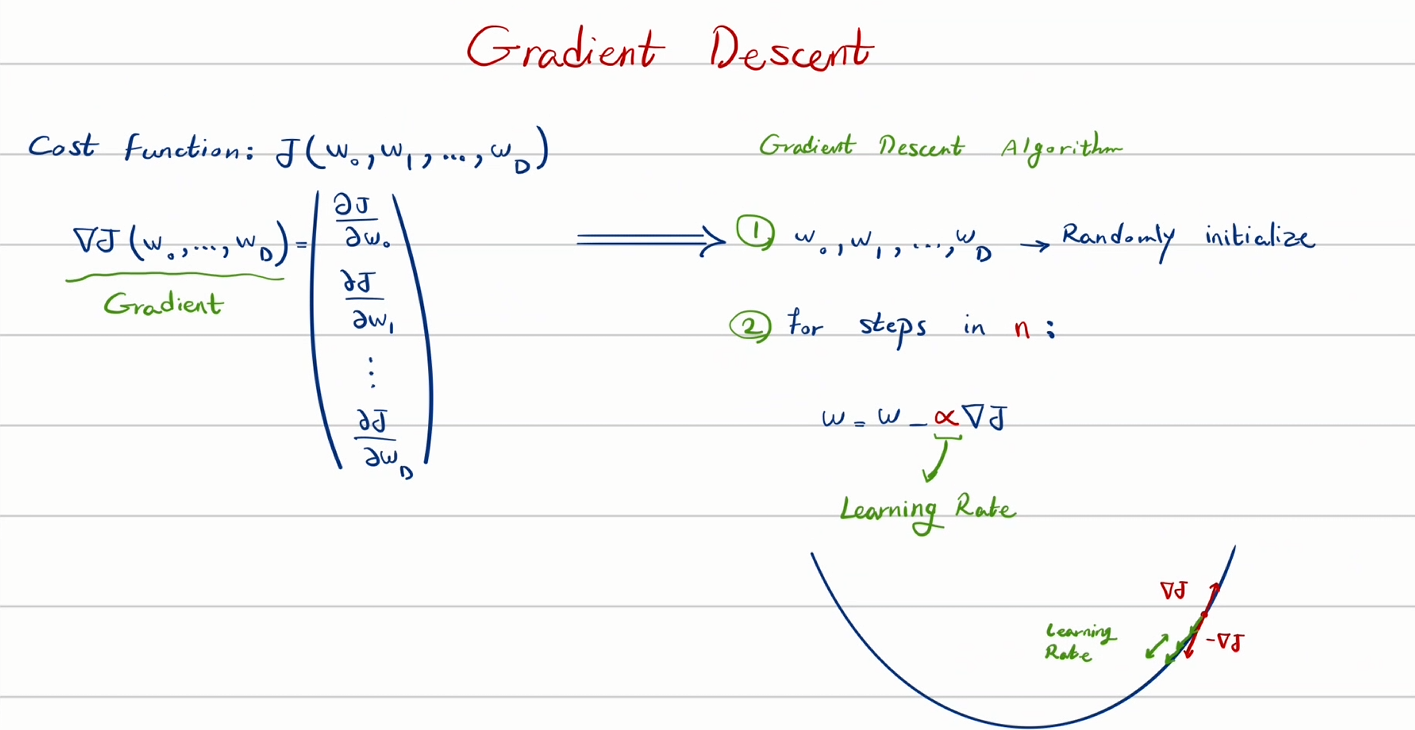 Gradient Descent
Cost function: J(w₀, w₁, ..., w_D)
∇J(w₀, ..., w_D) = (∂J/∂w₀
∂J/∂w₁
⋮
∂J/∂w_D)
Gradient
⟹
Gradient Descent Algorithm
① w₀, w₁, ..., w_D → Randomly initialize
② for steps in n:
w = w - α∇J
Learning Rate
∇J
-∇J
Learning
Rate